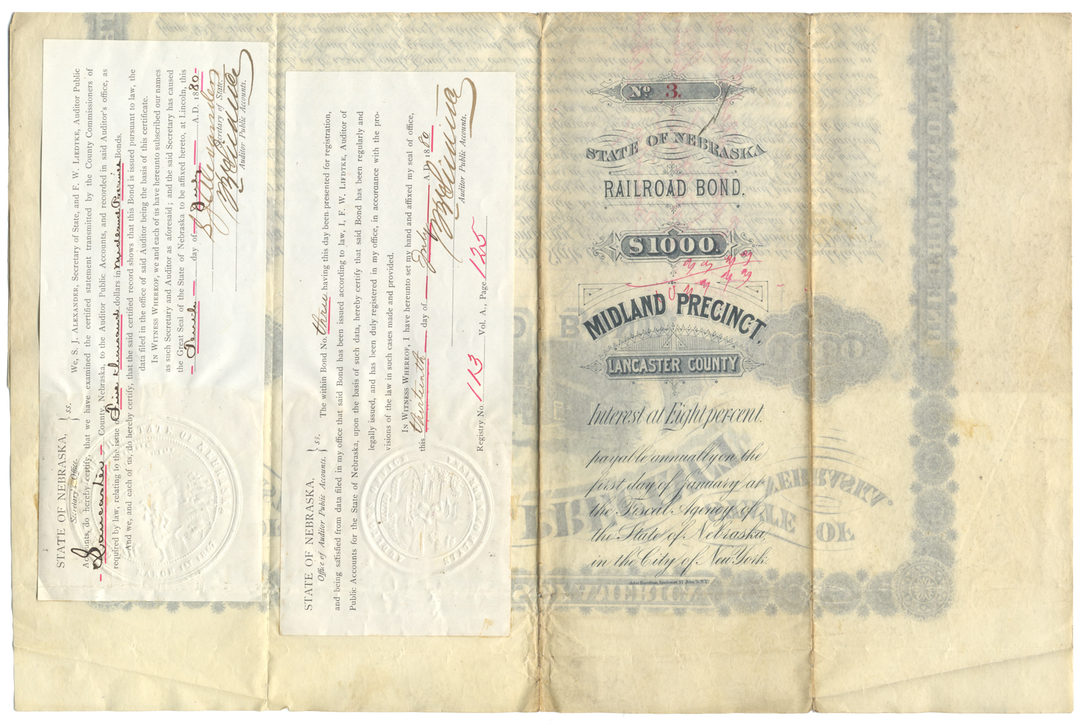 STATE OF NEBRASKA,
Secretary Office.
} ss.
We, S. J. ALEXANDER, Secretary of State, and F. W. LIEDTKE, Auditor Public
Accounts, do hereby certify, that we have examined the certified statement transmitted by the County Commissioners of
Lancaster County, Nebraska, to the Auditor Public Accounts, and recorded in said Auditor's office, as
required by law, relating to the issue of Five thousand dollars in Midland Precinct Bonds.
And we, and each of us, do hereby certify, that the said certified record shows that this Bond is issued pursuant to law, the
data filed in the office of said Auditor being the basis of this certificate.
IN WITNESS WHEREOF, we and each of us have hereunto subscribed our names
as such Secretary and Auditor as aforesaid; and the said Secretary has caused
the Great Seal of the State of Nebraska to be affixed hereto, at Lincoln, this
day of July A.D. 1880
S J Alexander
Secretary of State.
F W Liedtke
Auditor Public Accounts.
STATE OF NEBRASKA,
Office of Auditor Public Accounts,
} ss.
The within Bond No. three having this day been presented for registration,
and being satisfied from data filed in my office that said Bond has been issued according to law, I, F. W. LIEDTKE, Auditor of
Public Accounts for the State of Nebraska, upon the basis of such data, hereby certify that said Bond has been regularly and
legally issued, and has been duly registered in my office, in accordance with the pro-
visions of the law in such cases made and provided.
IN WITNESS WHEREOF, I have hereunto set my hand and affixed my seal of office,
this thirteenth day of July A.D. 1880
F W Liedtke
Auditor Public Accounts.
Registry No. 113 Vol. A., Page 125
No 3.
STATE OF NEBRASKA
RAILROAD BOND.
$1000.
MIDLAND PRECINCT,
LANCASTER COUNTY
Interest at Eight percent.
payable annually on the
first day of January at
the Fiscal Agency of
the State of Nebraska
in the City of New York.